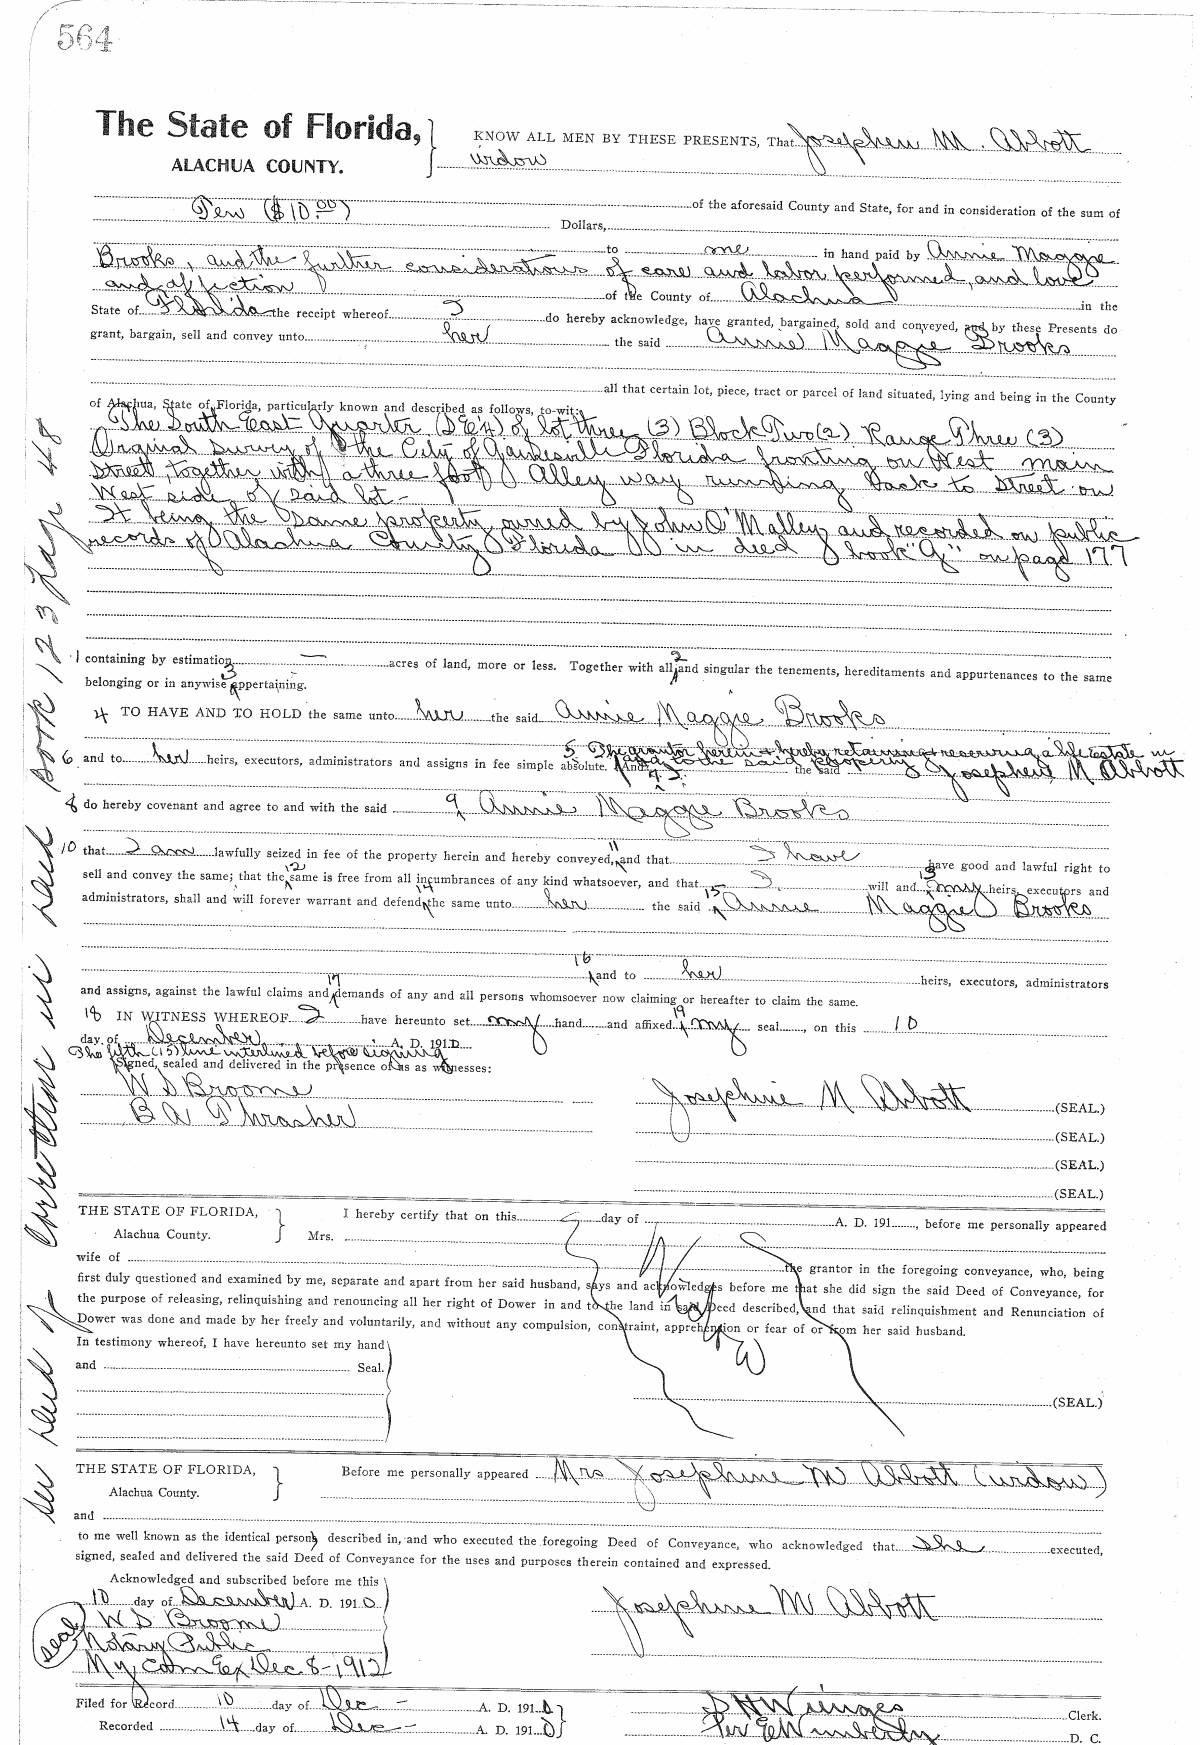 564
The State of Florida, KNOW ALL MEN BY THESE PRESENTS, That Josephen M. Abbott
ALACHUA COUNTY. widow
of the aforesaid County and State, for and in consideration of the sum of
Ten ($10.00) Dollars,
to me in hand paid by Annie Maggie
Brooks, and the further considerations of care and labor performed, and love
and affiction of the County of Alachua in the
State of Florida the receipt whereof I do hereby acknowledge, have granted, bargained, sold and conveyed, and by these Presents do
grant, bargain, sell and convey unto her the said Annie Maggie Brooks
all that certain lot, piece, tract or parcel of land situated, lying and being in the County
of Alachua, State of Florida, particularly known and described as follows, to-wit:
The South East Quarter (S E ¼) of lot three (3) Block Two (2) Range Three (3)
Orginal Survey of the City of Gainesville Florida fronting on West main
Street, together with a three foot Alley way running back to Street on
West side of said lot-
It being the same property owned by John O'Malley and recorded on public
records of Alachua County Florida in deed book "G" on page 177
1 containing by estimation — acres of land, more or less. Together with all 2 and singular the tenements, hereditaments and appurtenances to the same
belonging or in anywise 3 appertaining.
4 TO HAVE AND TO HOLD the same unto her the said Annie Maggie Brooks
5 The grantor herein hereby retaining & reserving a life Estate in
and to the said property
6 and to her heirs, executors, administrators and assigns in fee simple absolute. And the said Josephene M Abbott
8 do hereby covenant and agree to and with the said 9 Annie Maggie Brooks
10 that I am lawfully seized in fee of the property herein and hereby conveyed, 11 and that I have have good and lawful right to
sell and convey the same; that the 12 same is free from all incumbrances of any kind whatsoever, and that I will and 13 my heirs, executors and
administrators, shall and will forever warrant and defend 14 the same unto her the said 15 Annie Maggie Brooks
16 and to her heirs, executors, administrators
and assigns, against the lawful claims and 17 demands of any and all persons whomsoever now claiming or hereafter to claim the same.
18 IN WITNESS WHEREOF I have hereunto set my hand and affixed 19 my seal, on this 10
day of December A. D. 1910
The fifth (15) line interlined before signing
Signed, sealed and delivered in the presence of us as witnesses:
W S Broome
B A Thrasher
Josephine M Abbott (SEAL.)
(SEAL.)
(SEAL.)
(SEAL.)
THE STATE OF FLORIDA, I hereby certify that on this day of A. D. 191, before me personally appeared
Alachua County. Mrs.
wife of the grantor in the foregoing conveyance, who, being
first duly questioned and examined by me, separate and apart from her said husband, says and acknowledges before me that she did sign the said Deed of Conveyance, for
the purpose of releasing, relinquishing and renouncing all her right of Dower in and to the land in said Deed described, and that said relinquishment and Renunciation of
Dower was done and made by her freely and voluntarily, and without any compulsion, constraint, apprehension or fear of or from her said husband.
In testimony whereof, I have hereunto set my hand
and Seal.
(SEAL.)
THE STATE OF FLORIDA, Before me personally appeared Mrs Josephine M Abbott (widow)
Alachua County.
and
to me well known as the identical person described in, and who executed the foregoing Deed of Conveyance, who acknowledged that she executed,
signed, sealed and delivered the said Deed of Conveyance for the uses and purposes therein contained and expressed.
Acknowledged and subscribed before me this
10 day of December A. D. 1910
Josephine M Abbott
W S Broome
Seal Notary Public
My Com Ex Dec 8-1912
Filed for Record 10 day of Dec - A. D. 1910 S H Wienges Clerk.
Recorded 14 day of Dec - A. D. 1910 Per E Wimberly D. C.
see deed of correction in deed Book 123 Page 48